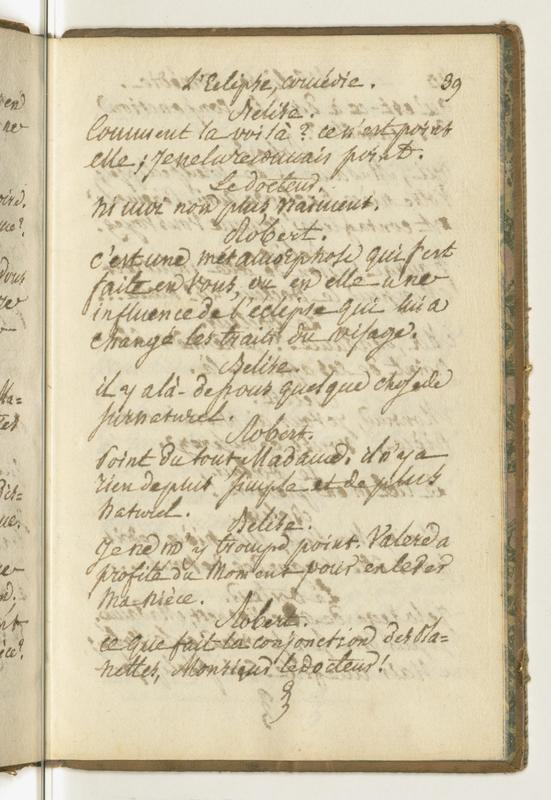 L'Eclipse, comédie. 39
Belise.
Comment la voilà? ce n'est point
elle; Je ne la reconnais point.
Le docteur.
ni moi non plus vraiment.
Robert.
c'est une métamorphose qui s'est
faite en vous, ou en elle une
influence de l'éclipse qui lui a
changé les traits du visage.
Belise.
il y a là-dessous quelque chose de
surnaturel.
Robert.
Point du tout Madame, il n'y a
rien de plus simple et de plus
naturel.
Belise.
Je ne m'y trompe point. Valere a
profité du Moment pour enlever
Ma Niéce.
Robert.
ce que fait la conjonction des Pla=
nettes, Monsieur le docteur!